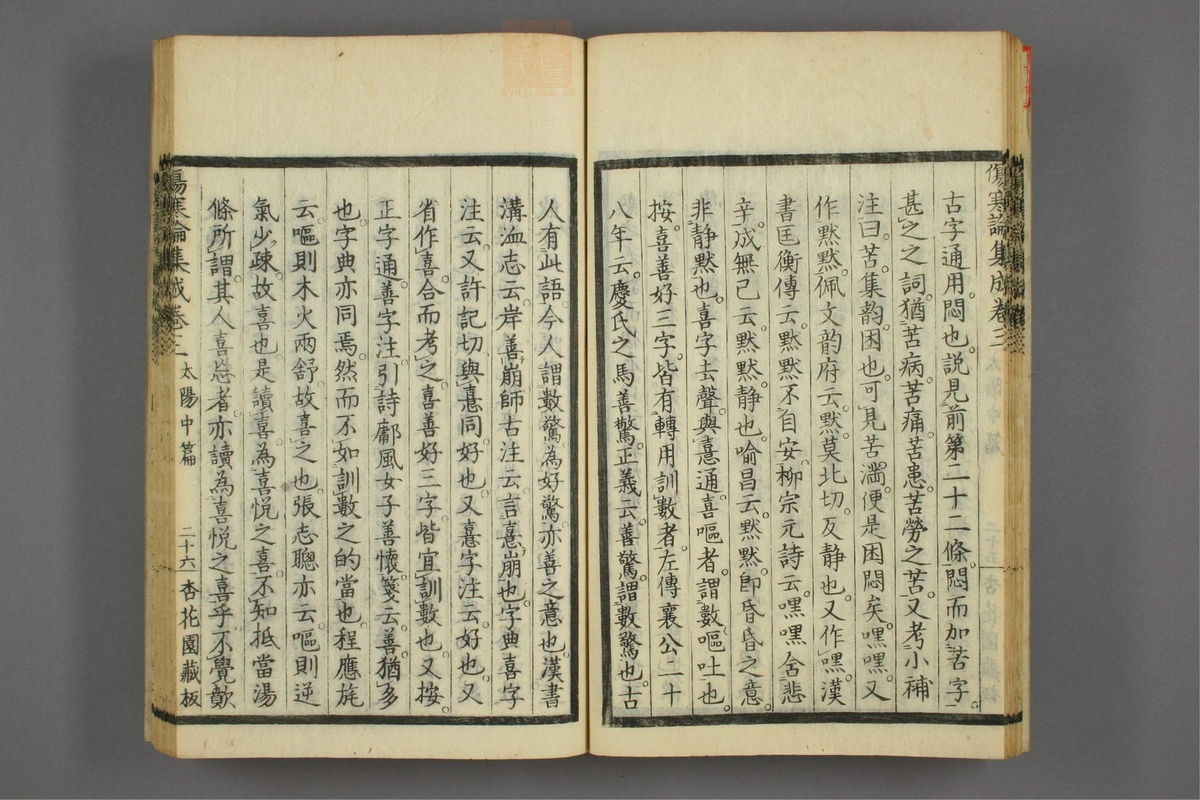 傷寒論集成卷三
古字通用。悶也。說見前第二十二條。悶而加苦字。
甚之之詞。猶苦病。苦痛。苦患。苦勞之苦。又考小補
注曰。苦。集韵。困也。可見苦滿。便是困悶矣。嘿嘿。又
作默默。佩文韵府云。默。莫北切。反靜也。又作嘿。漢
書匡衡傳云。默默不自安。柳宗元詩云。嘿嘿含悲
辛。成無己云。默默。静也。喻昌云。默默。即昏昏之意。
非静默也。喜字去聲。與憙通。喜嘔者。謂數嘔吐也。
按。喜善好三字。皆有轉用訓數者。左傳襄公二十
八年云。慶氏之馬善驚。正義云。善驚。謂數驚也。古
人有此語。今人謂數驚為好驚。亦善之意也。漢書
溝洫志云。岸善崩。師古注云。言憙崩也。字典喜字
注云。又許記切。與憙同。好也。又憙字注云。好也。又
省作喜。合而考之。喜善好三字。皆宜訓數也。又按。
正字通。善字注。引詩鄘風女子善懷。箋云。善。猶多
也。字典亦同焉。然而不如訓數之的當也。程應旄
云。嘔則木火兩舒。故喜之也。張志聰亦云。嘔則逆
氣少疎。故喜也。是讀喜。為喜悅之喜。不知抵當湯
條所謂。其人喜忘者。亦讀為喜悅之喜乎。不覺歕
傷寒論集成卷三
太陽中篇
二十六
杏花園藏板